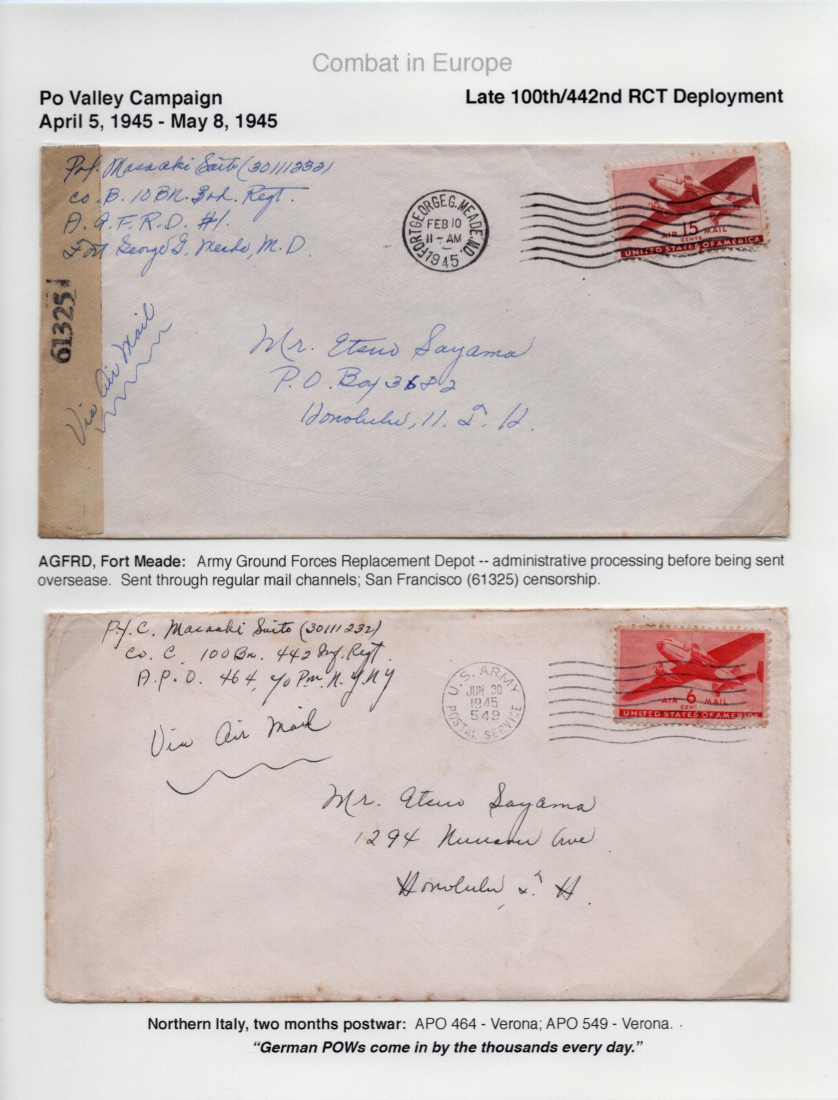 Combat in Europe
Po Valley Campaign
Late 100th/442nd RCT Deployment
April 5, 1945 - May 8, 1945
Pvt. Masaaki Saito (30111232)
Co. B. 10 Bn. 3rd. Regt.
A. G. F. R. D. #1.
Fort George G. Meade, M. D.
61325
Via Air Mail
FORT GEORGE G. MEADE, MD.
FEB 10
11 - AM
1945
AIR 15 MAIL
CENTS
UNITED STATES OF AMERICA
Mr. Etsuo Sayama
P.O. Box 3682
Honolulu, T. H.
AGFRD, Fort Meade: Army Ground Forces Replacement Depot -- administrative processing before being sent
oversease. Sent through regular mail channels; San Francisco (61325) censorship.
P.f.C. Masaaki Saito (30111232)
Co. C. 100 Bn. 442 Inf. Regt.
A.P.O. 464, c/o P.m. N.Y. N.Y
Via Air Mail
U.S. ARMY
JUN 30
1945
549
POSTAL SERVICE
AIR 6 MAIL
CENTS
UNITED STATES OF AMERICA
Mr. Etsuo Sayama
1294 Ave
Honolulu, T. H.
Northern Italy, two months postwar: APO 464 - Verona; APO 549 - Verona.
“German POWs come in by the thousands every day.”